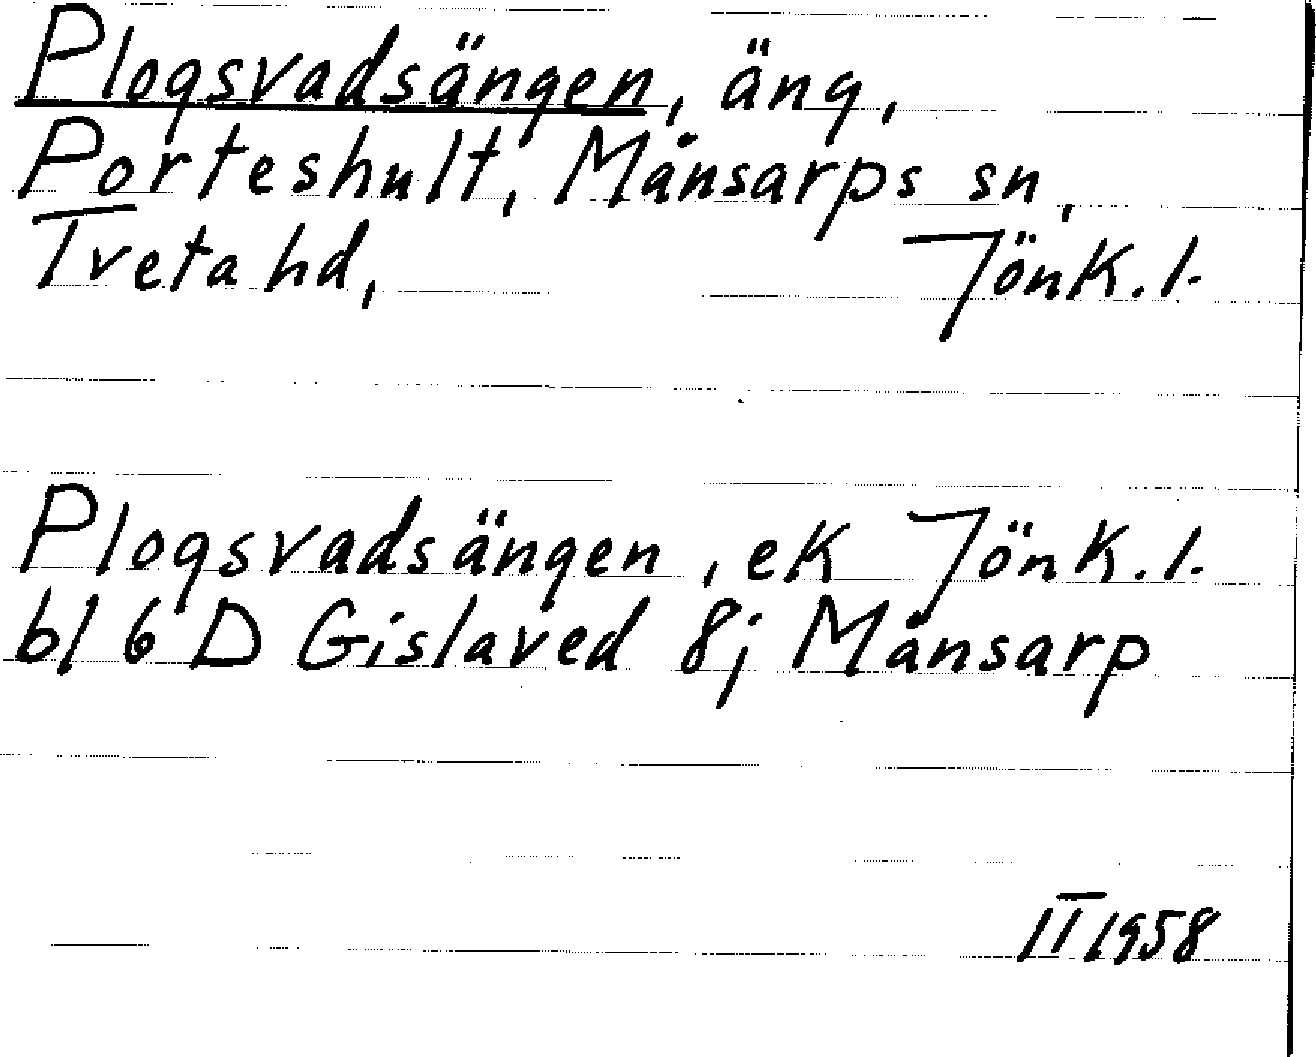 Plogsvadsängen, äng,
Porteshult, Månsarps sn,
Tveta hd, Jönk. l.
Plogsvadsängen, ek Jönk. l.
bl 6 D Gislaved 8j Månsarp
II 1958